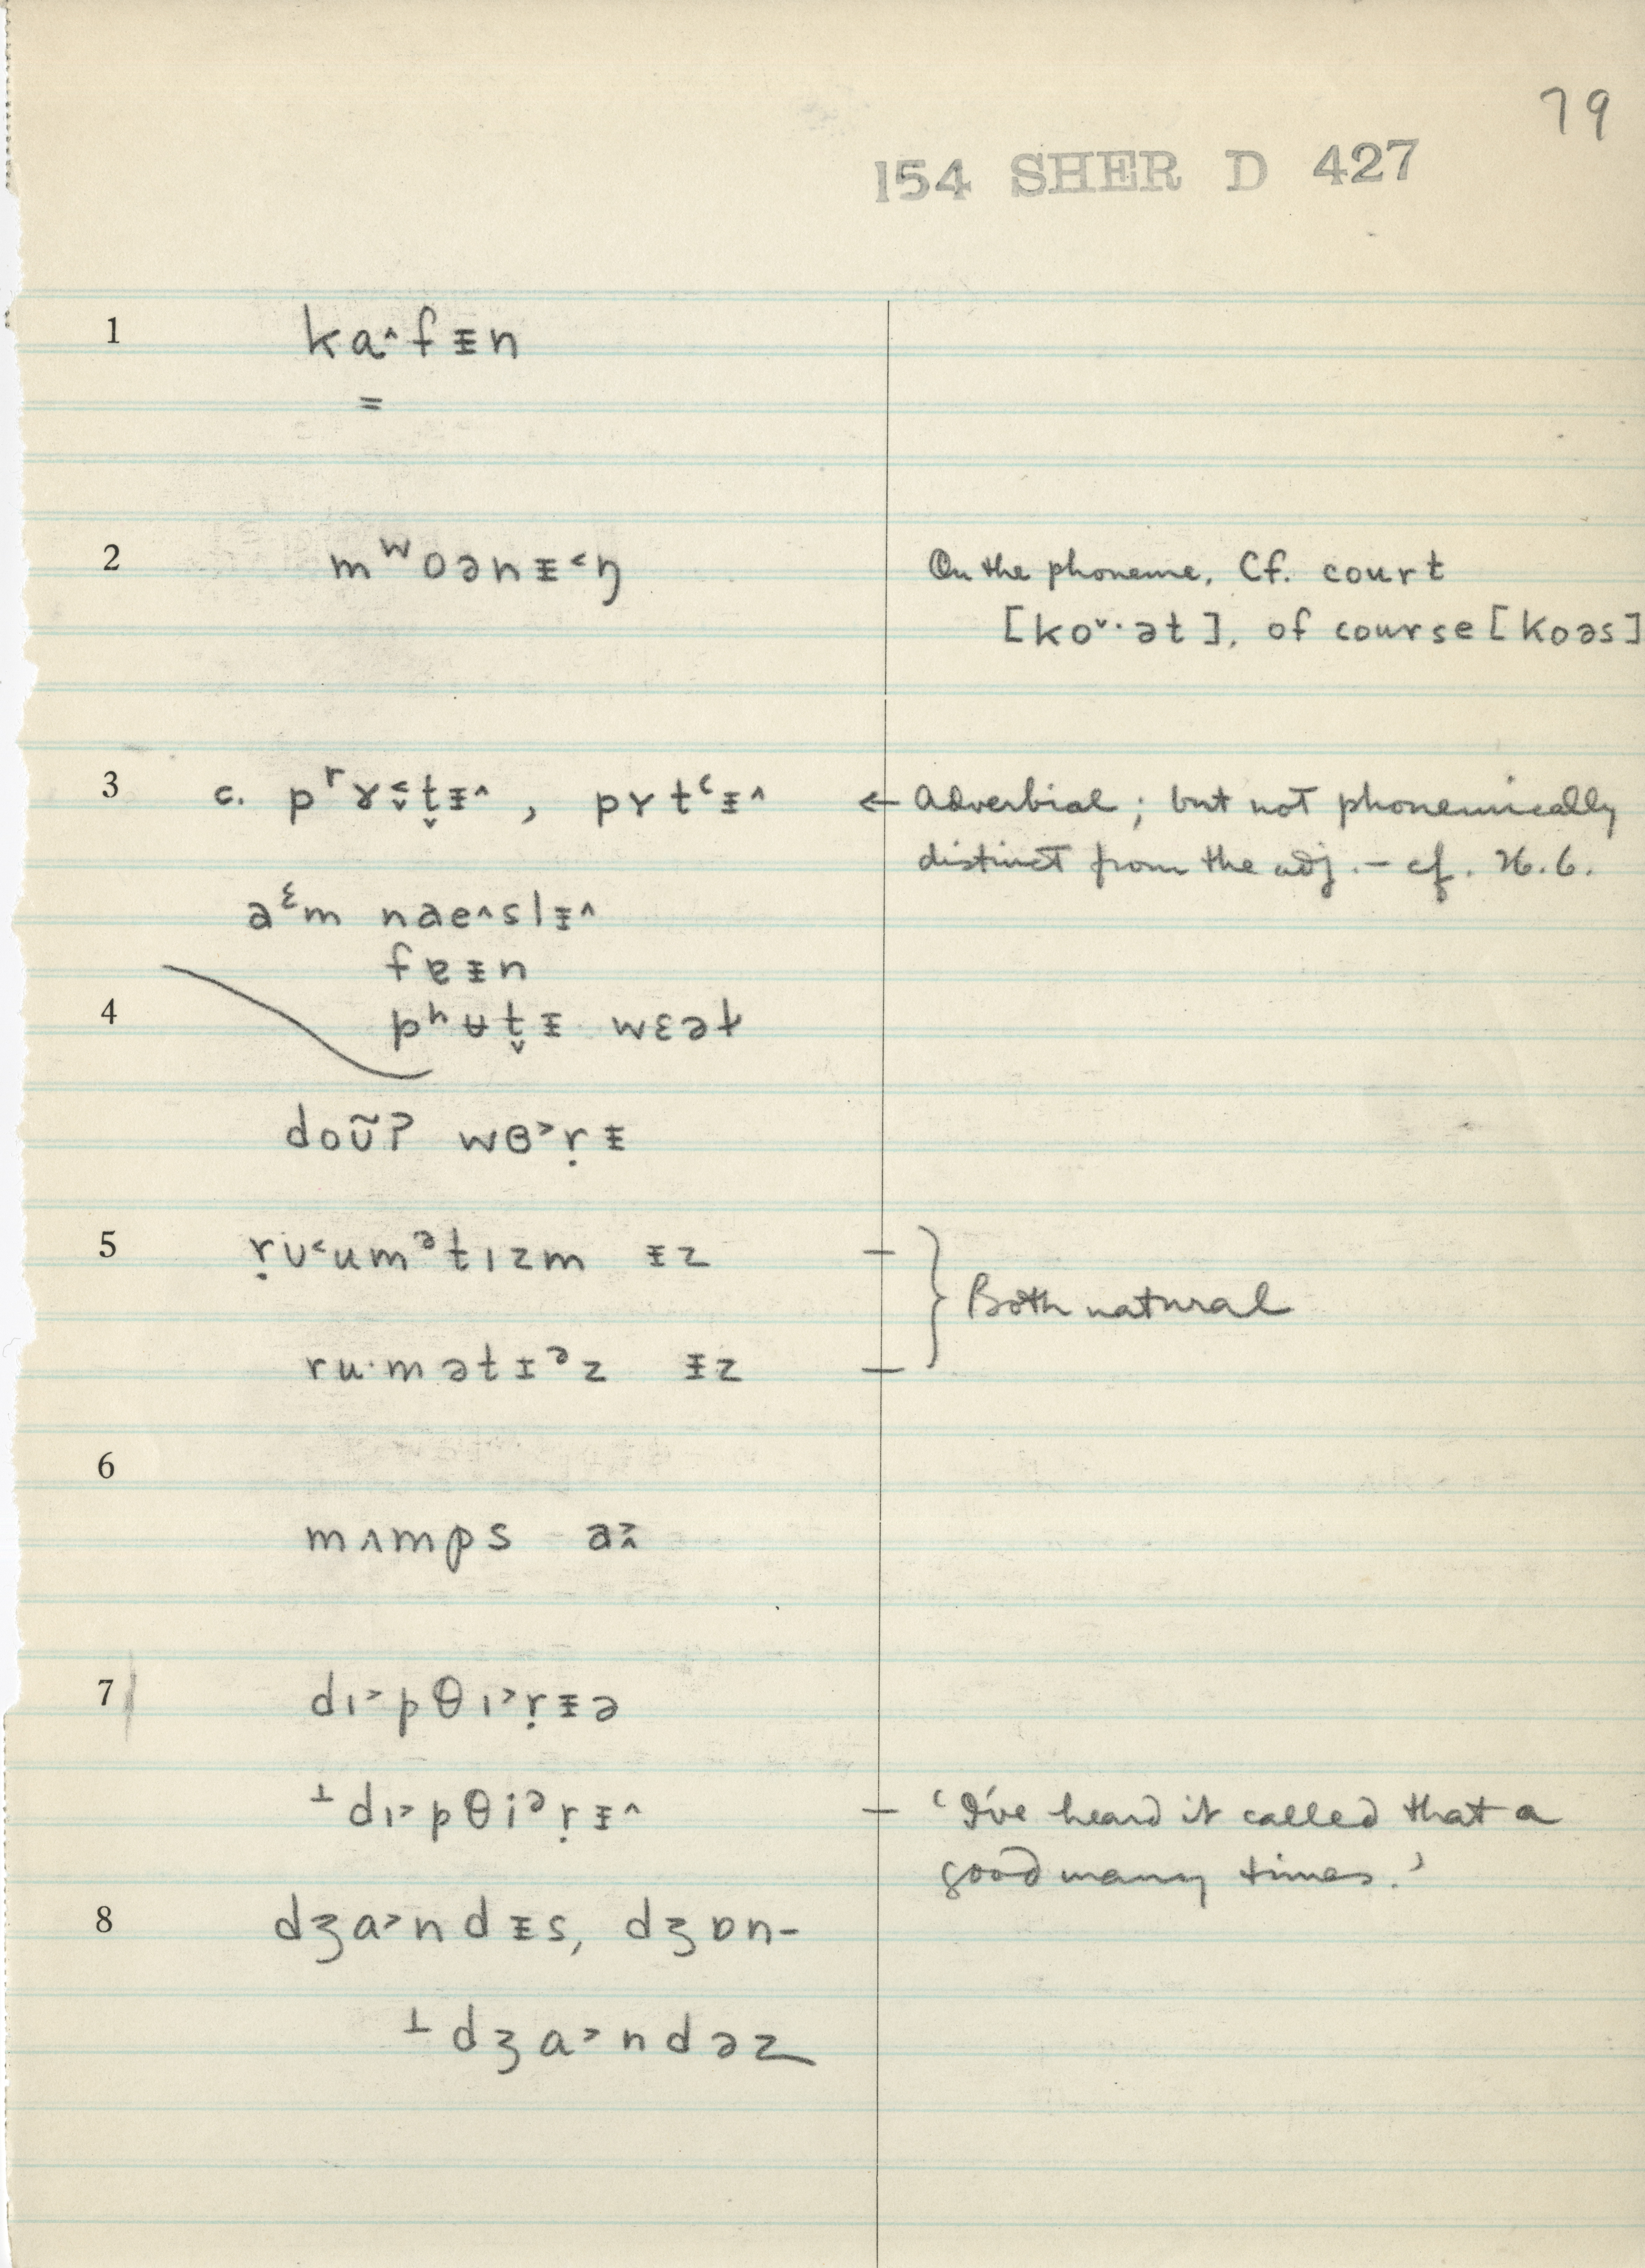 79
154 SHER D 427
1 ka˄fᵻn
=
2 mʷoənᵻ˂ŋ
On the phoneme. Cf. court
[ko˅·ət], of course [koəs]
3 c. pʳɤ˂̬t̬ᵻ˄, pɤtʿᵻ˄
← Adverbial; but not phonemically
distinct from the adj. – cf. 26.6.
aᵋm nae˄slᵻ˄
fɐᵻn
4 pʰʉt̬ᵻ wɛət
doʊ̃ʔ wɵ˃ṛᵻ
5 ṛʊ˂umᵊtɪzm ᵻz
Both natural
ru·mətɪᵊz ᵻz
6
mʌmps a˃̭
7 dɪ˃pθɪ˃ṛᵻə
⊥dɪ˃pθiᵊṛᵻ˄ – 'I've heard it called that a
good many times.'
8 dʒa˃ndᵻs, dʒɒn–
⊥dʒa˃ndəz